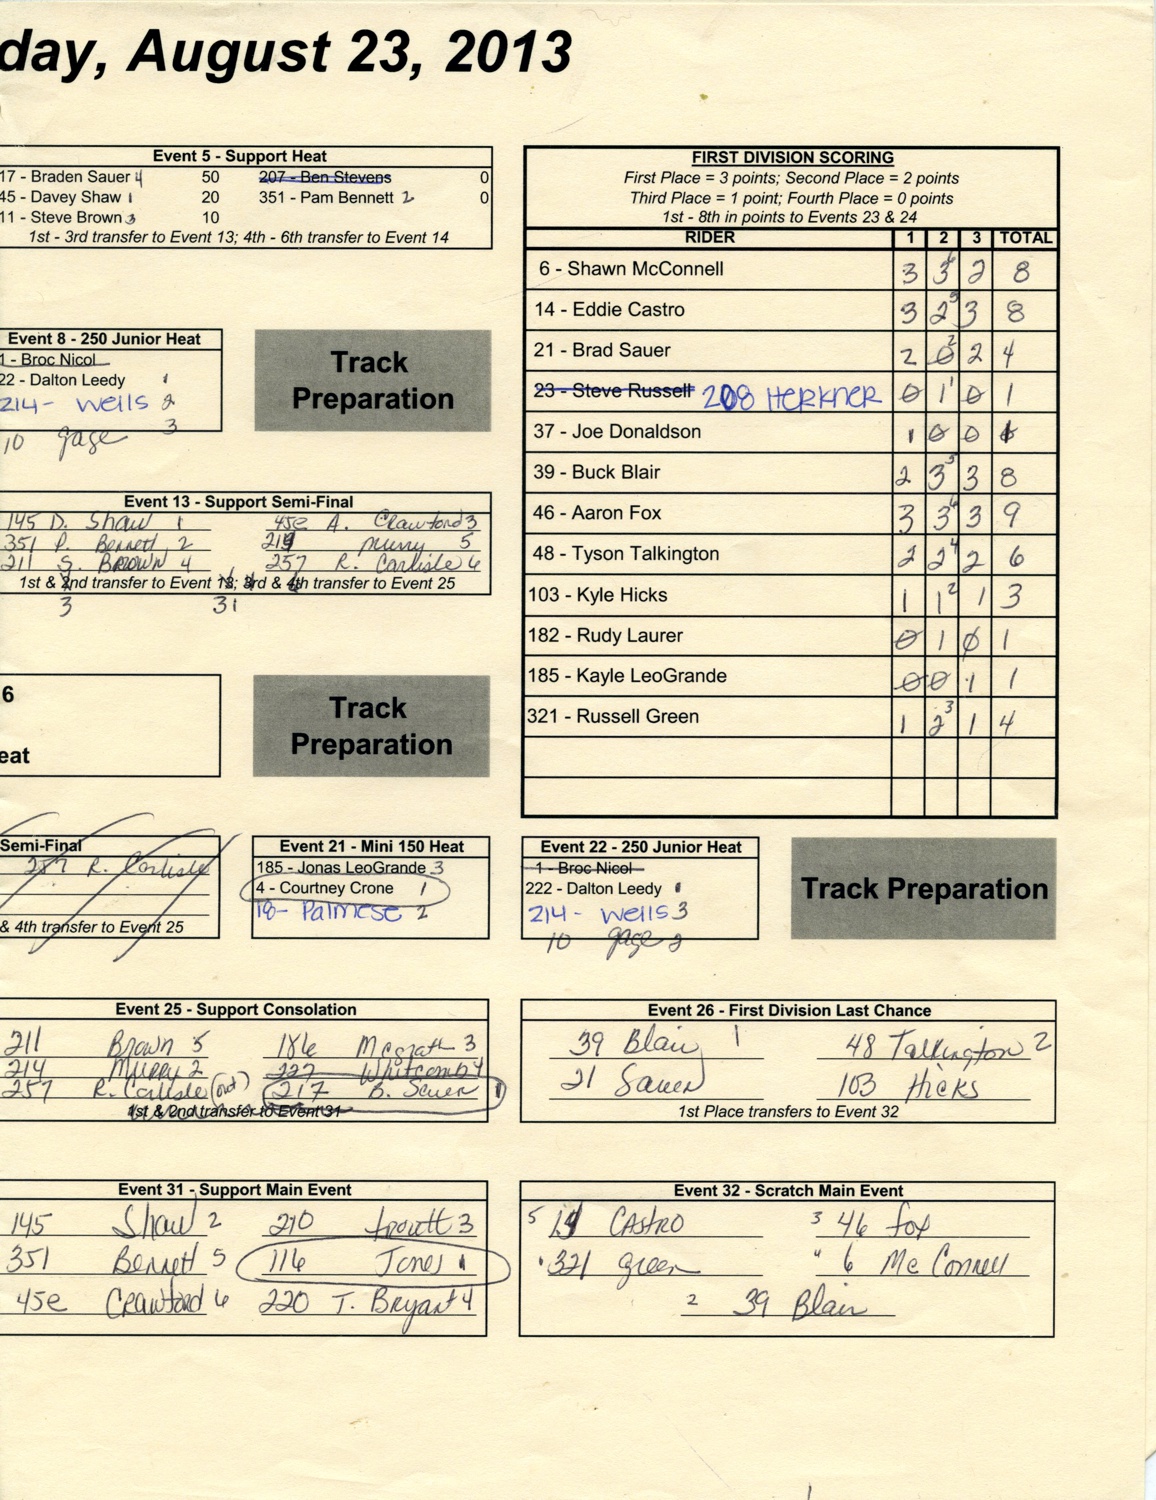 day, August 23, 2013
Event 5 - Support Heat
17 - Braden Sauer 4 50 207 - Ben Stevens 0
45 - Davey Shaw 1 20 351 - Pam Bennett 2 0
11 - Steve Brown 3 10
1st - 3rd transfer to Event 13; 4th - 6th transfer to Event 14
FIRST DIVISION SCORING
First Place = 3 points; Second Place = 2 points
Third Place = 1 point; Fourth Place = 0 points
1st - 8th in points to Events 23 & 24
RIDER 1 2 3 TOTAL
6 - Shawn McConnell 3 3 2 8
14 - Eddie Castro 3 2 3 8
21 - Brad Sauer 2 0 2 4
23 - Steve Russell 208 HERKNER 0 1 0 1
37 - Joe Donaldson 1 0 0 1
39 - Buck Blair 2 3 3 8
46 - Aaron Fox 3 3 3 9
48 - Tyson Talkington 2 2 2 6
103 - Kyle Hicks 1 1 1 3
182 - Rudy Laurer 0 1 0 1
185 - Kayle LeoGrande 0 0 1 1
321 - Russell Green 1 2 1 4
Event 8 - 250 Junior Heat
1 - Broc Nicol
22 - Dalton Leedy 1
214 - Wells 2
10 gage 3
Track
Preparation
Event 13 - Support Semi-Final
145 D. Shaw 1 45e A. Crawford 3
351 P. Bennett 2 214 Murry 5
211 S. BROWN 4 257 R. Carlisle 6
1st & 2nd transfer to Event 18; 3rd & 4th transfer to Event 25
3 31
6
eat
Track
Preparation
Semi-Final
257 R. Carlisle
& 4th transfer to Event 25
Event 21 - Mini 150 Heat
185 - Jonas LeoGrande 3
4 - Courtney Crone 1
18 - Palmese 2
Event 22 - 250 Junior Heat
1 - Broc Nicol
222 - Dalton Leedy 1
214 - Wells 3
10 gage 2
Track Preparation
Event 25 - Support Consolation
211 Brown 5 186 Mcgrath 3
214 Murry 2 227 Whitcomb 4
257 R. Carlisle (out) 217 B. Sauer 1
1st & 2nd transfer to Event 31
Event 26 - First Division Last Chance
39 Blair 1 48 Talkington 2
21 Sauer 103 Hicks
1st Place transfers to Event 32
Event 31 - Support Main Event
145 Shaw 2 210 Trovtt 3
351 Bennett 5 116 Jones 1
45e Crawford 6 220 T. Bryant 4
Event 32 - Scratch Main Event
5 14 CASTRO 3 46 Fox
1 321 green 4 6 McConnell
2 39 Blair